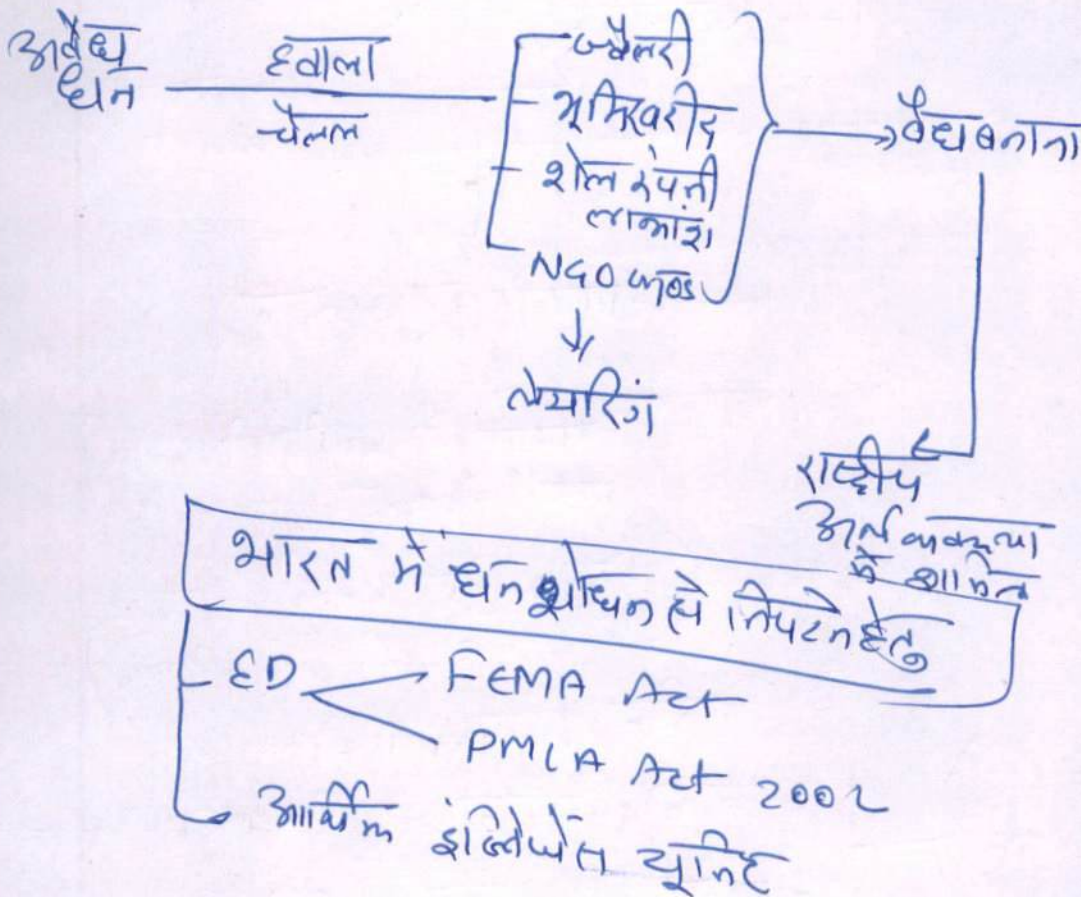 अवैध
धन
हवाला
चैनल
ज्वैलरी
भूमि खरीद
शेल कंपनी
लाभांश
NGO फण्ड
वैध बनाना
लेयरिंग
राष्ट्रीय
अर्थव्यवस्था
में शामिल
भारत में धन शोधन से निपटने हेतु
ED
FEMA Act
PMLA Act 2002
आर्थिक इंटेलीजेंस यूनिट